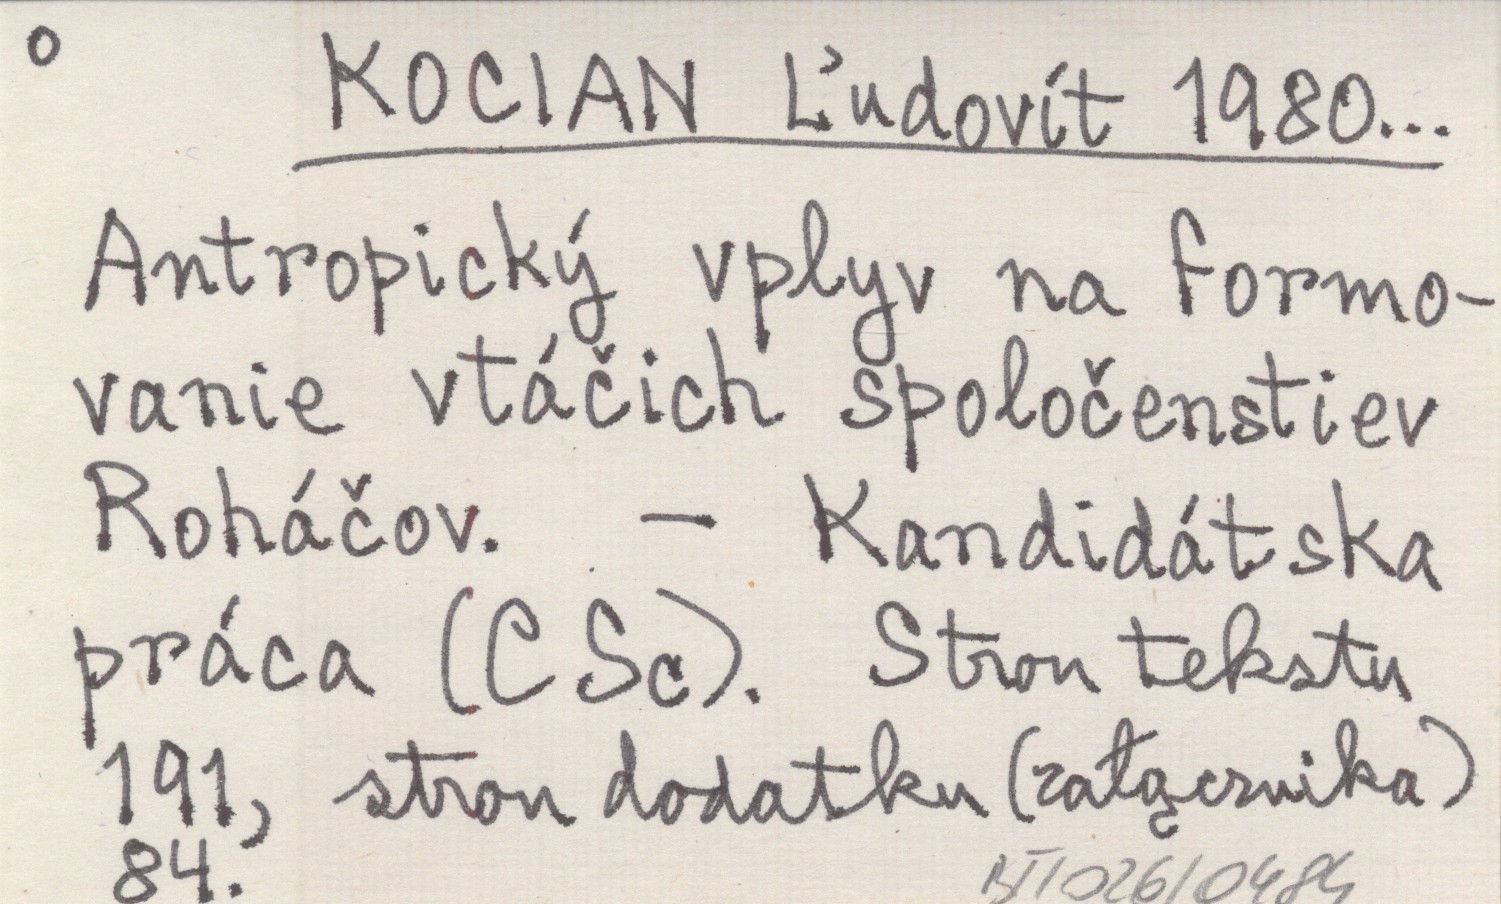 o
KOCIAN Ľudovít 1980...
Antropický vplyv na formo-
vanie vtáčich spoločenstiev
Roháčov. — Kandidátska
práca (CSc). Stron tekstu
191, stron dodatku (załącznika)
84.
BT/026/0484